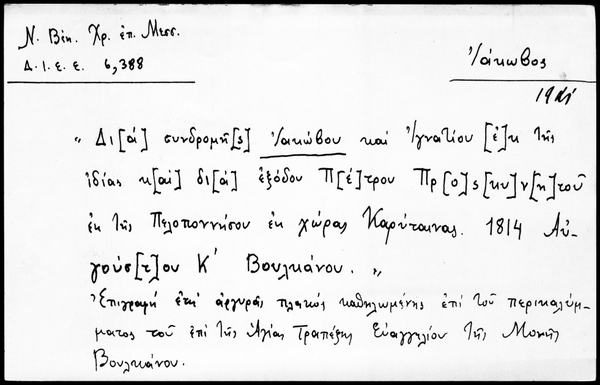 Ν. Βέη. Χρ. ἐπ. Μεσσ.
Δ. Ι. Ε. Ε. 6,388
Ἰάκωβος
19ος
„ Δι[ὰ] συνδρομῆ[ς] Ἰακώβου καὶ Ἰγνατίου [ἐ]κ τῆς
ἰδίας κ[αὶ] δι[ὰ] ἐξόδου Π[έ]τρου Πρ[ο]ς[κυ]ν[η]τοῦ
ἐκ τῆς Πελοποννήσου ἐκ χώρας Καρύταινας. 1814 Αὐ-
γούσ[τ]ου Κ΄ Βουλκάνου. „
Ἐπιγραφὴ ἐπὶ ἀργυρᾶς πλακὸς καθηλωμένης ἐπὶ τοῦ περικαλύμ-
ματος τοῦ ἐπὶ τῆς Ἁγίας Τραπέζης Εὐαγγελίου τῆς Μονῆς
Βουλκάνου.